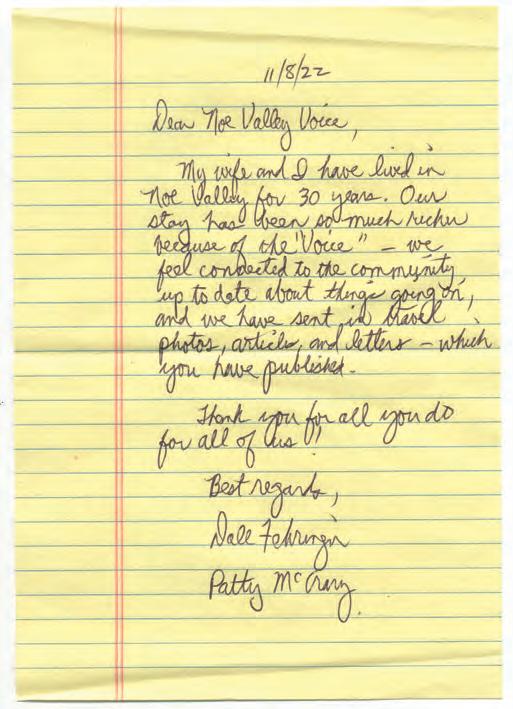 11/8/22
Dear Noe Valley Voice,
My wife and I have lived in
Noe Valley for 30 years. Our
stay has been so much richer
because of the "Voice" – we
feel connected to the community,
up to date about things going on,
and we have sent in travel
photos, articles, and letters – which
you have published.
Thank you for all you do
for all of us!
Best regards,
Dale Fehringer
Patty McCrary